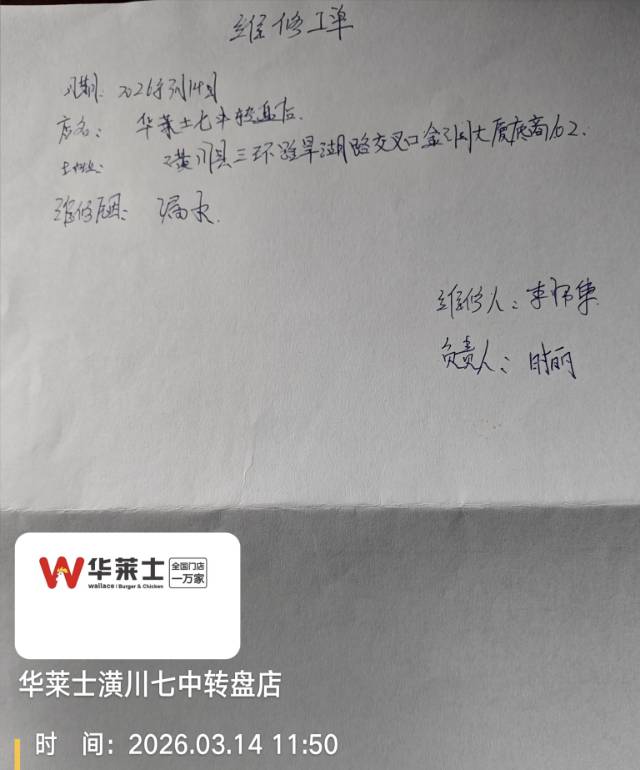 维修工单
日期: 2026年3月14日
店名: 华莱士七中转盘店
地址: 潢川县三环路旱湖路交叉口金 大厦底商102.
维修原因: 漏水.
维修人: 李
负责人: 时丽
W华莱士
wallace | Burger & Chicken
全国门店
一万家
华莱士潢川七中转盘店
时 间: 2026.03.14 11:50